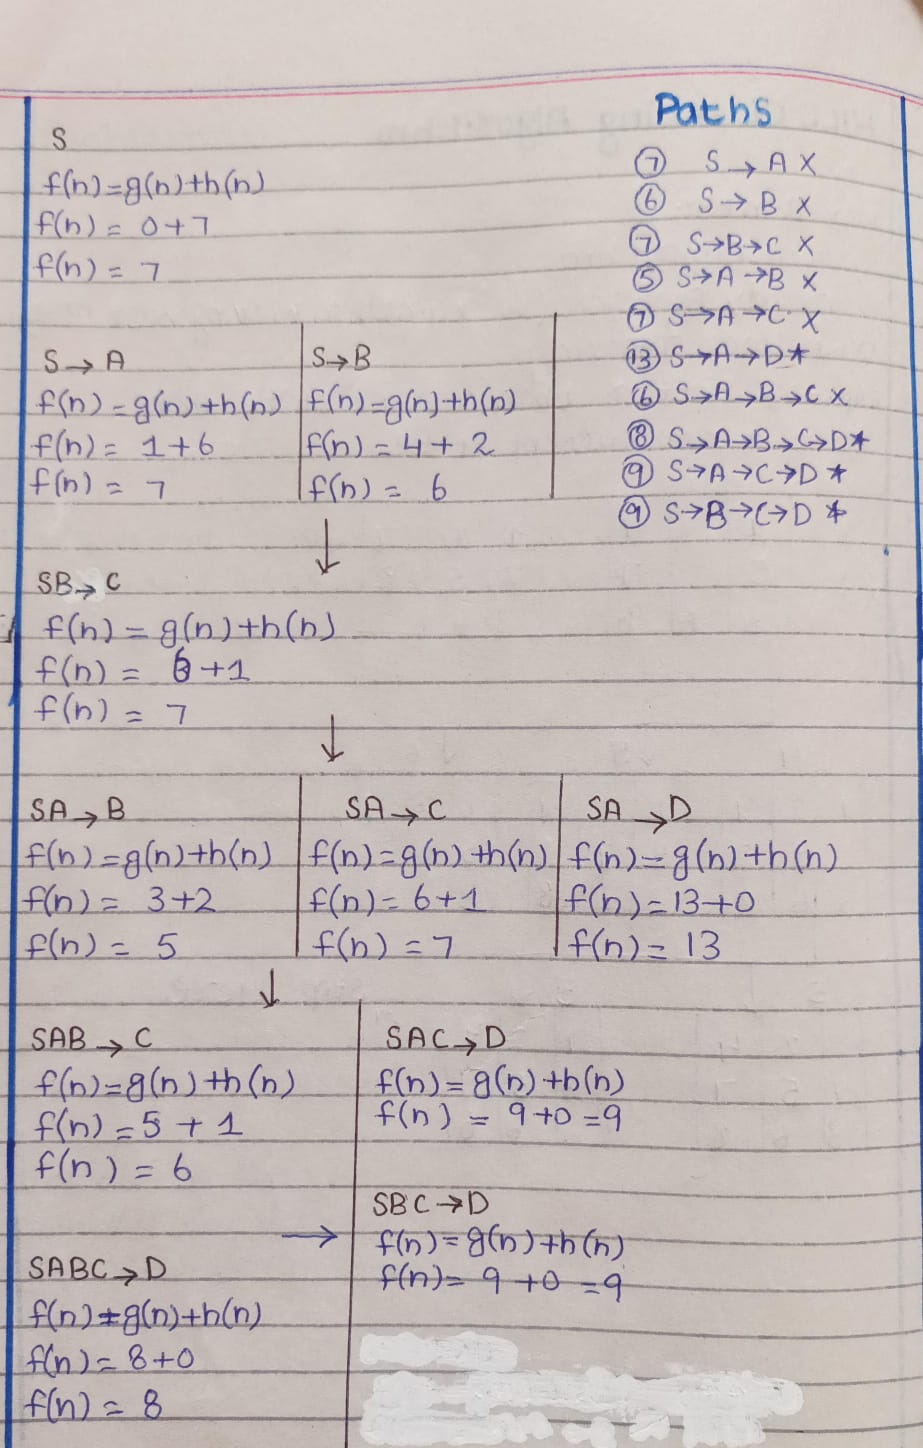 Paths
⑦ S → A X
⑥ S → B X
⑦ S→B→C X
⑤ S→A→B X
⑦ S→A→C X
⑬ S→A→D*
⑥ S→A→B→C X
⑧ S→A→B→C→D*
⑨ S→A→C→D *
⑨ S→B→C→D *
S
f(n)=g(n)+h(n)
f(n) = 0+7
f(n) = 7
S → A
f(n)=g(n)+h(n)
f(n) = 1+6
f(n) = 7
S→B
f(n)=g(n)+h(n)
f(n) = 4+ 2
f(n) = 6
↓
SB→ C
f(n) = g(n)+h(n)
f(n) = 6+1
f(n) = 7
↓
SA → B
f(n)=g(n)+h(n)
f(n) = 3+2
f(n) = 5
SA → C
f(n)=g(n)+h(n)
f(n)= 6+1
f(n) = 7
SA → D
f(n)=g(n)+h(n)
f(n)=13+0
f(n)= 13
↓
SAB → C
f(n)=g(n)+h(n)
f(n) =5 + 1
f(n) = 6
SAC→D
f(n)=g(n)+h(n)
f(n) = 9+0 =9
SBC→D
→ f(n)=g(n)+h(n)
f(n)= 9 +0 =9
SABC→D
f(n)=g(n)+h(n)
f(n)= 8+0
f(n) = 8